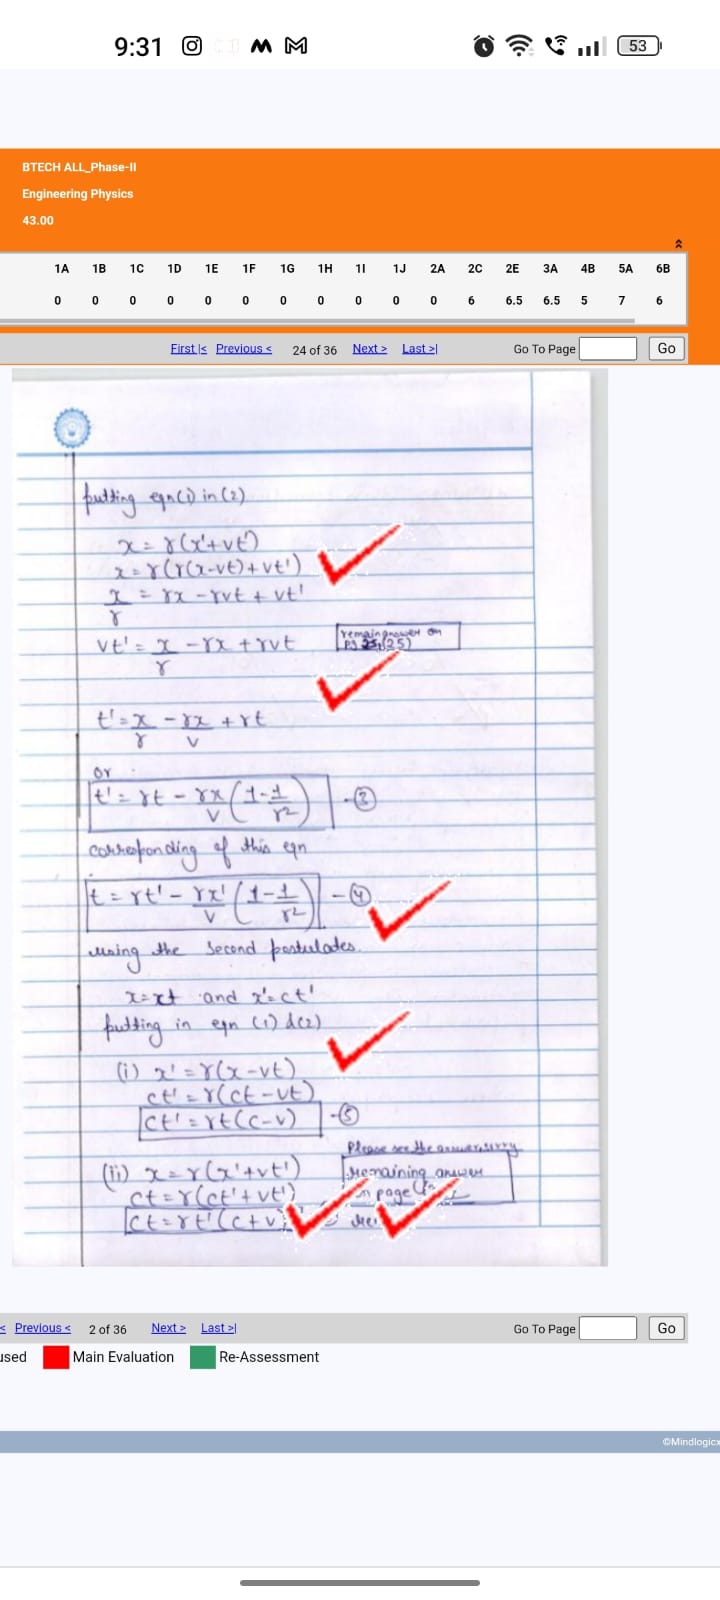 9:31
53
BTECH ALL_Phase-II
Engineering Physics
43.00
1A 1B 1C 1D 1E 1F 1G 1H 1I 1J 2A 2C 2E 3A 4B 5A 6B
0 0 0 0 0 0 0 0 0 0 0 6 6.5 6.5 5 7 6
First |< Previous < 24 of 36 Next > Last >| Go To Page Go
putting eqn (i) in (2)
x = γ(x'+vt')
x = γ(γ(x-vt)+vt')
x/γ = γx - γvt + vt'
vt' = x/γ - γx + γvt
remain answer on
pg (25)
t' = x/γ - γx/v + γt
or
t' = γt - γx/v (1-1/γ2) -③
corresponding of this eqn
t = γt' - γx'/v (1-1/γ2) -④
using the second postulades.
x=ct and x'=ct'
putting in eqn (1) & (2)
(i) x' = γ(x-vt)
ct' = γ(ct-vt)
ct' = γt(c-v) -⑤
Please see the answer, sorry
(ii) x = γ(x'+vt')
remaining answer
ct = γ(ct'+vt')
on page
ct = γt'(c+v)
< Previous < 2 of 36 Next > Last >| Go To Page Go
used Main Evaluation Re-Assessment
©Mindlogicx